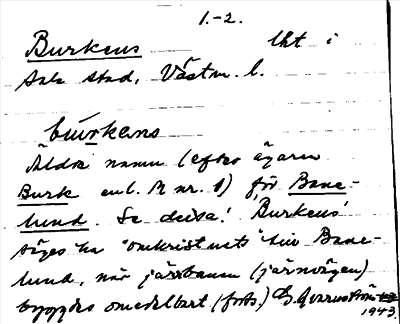 1.-2.
Burkens lht i
Sala stad, Västm. l.
búrkens
Äldre namn (efter ägaren
Burk enl. R nr. 1) för Bane-
lund. Se dessa! Burkens
säges ha "omkristnats" till Bane-
lund, när järnbanan (järnvägen)
byggdes omedelbart (forts.)
1943.